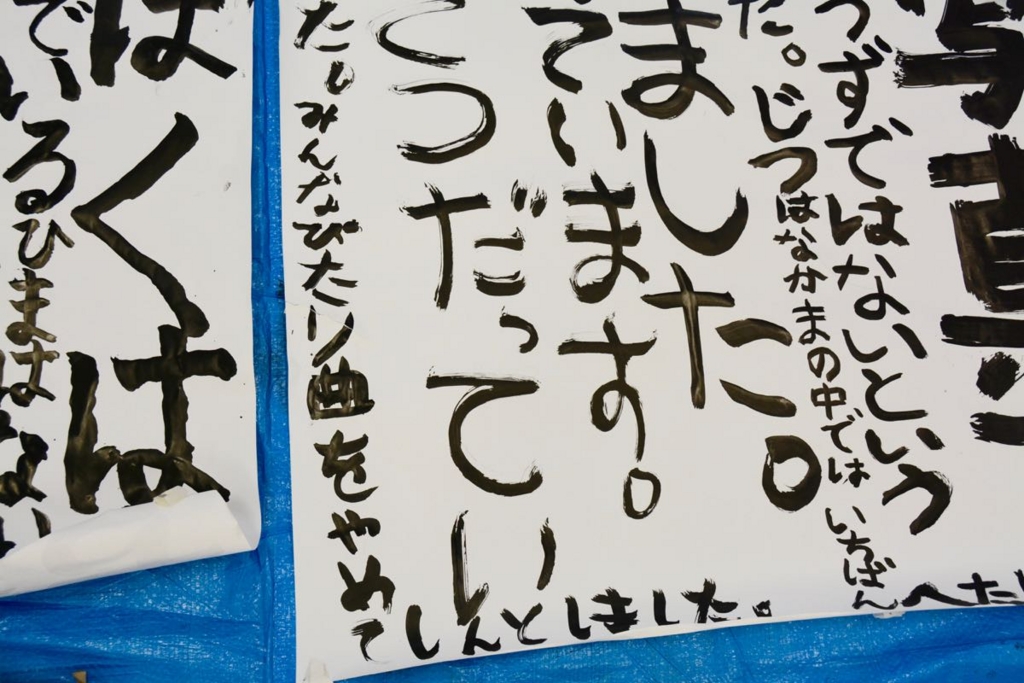 うずではないという
た。じつはなかまの中では いちばんへた
ました。
ています。
つだってい
た。みんなぴたり曲をやめてしんとしました。
はくは
でいるひまはない